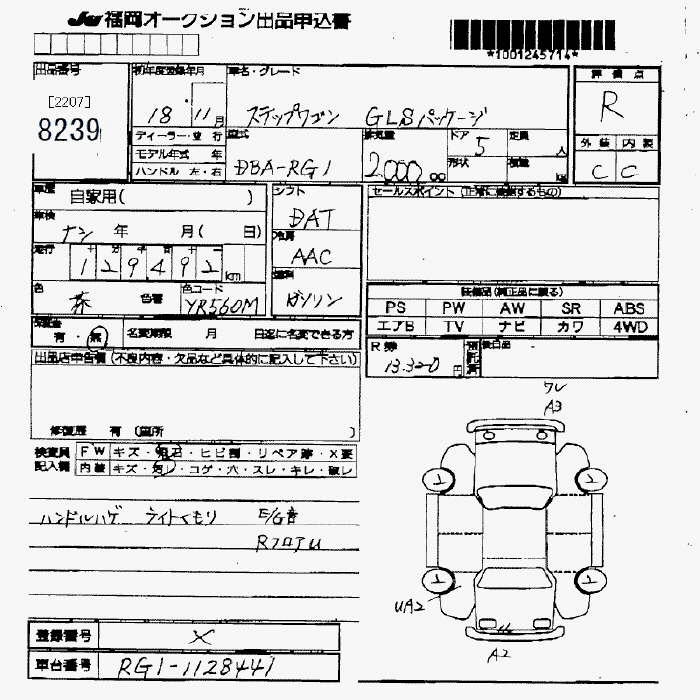 JU 福岡オークション出品申込書
*1001245714*
出品番号
[2207]
8239
初年度登録年月
18・11月
車名・グレード
ステップワゴン GLSパッケージ
評価点
R
外装 内装
C C
ディーラー・並行
モデル年式 年
ハンドル 左・右
型式
DBA-RG1
排気量
2.000 cc
ドア
5
定員
人
形状
積量
kg
車歴
自家用( )
車検
ナシ 年 月( 日)
走行
129492 km
色
茶
色替
色コード
YR560M
シフト
DAT
冷房
AAC
燃料
ガソリン
セールスポイント (正常に機能するもの)
装備品(純正品に限る)
PS PW AW SR ABS
エアB TV ナビ カワ 4WD
有・無
名変期限 月 日迄に名変できる方
R券
13.320 円
後日品
出品店申告欄 (不良内容・欠品など具体的に記入して下さい)
修復歴 有 (箇所 )
検査員記入欄
FW キズ・飛石・ヒビ割・リペア跡・X要
内装 キズ・汚レ・コゲ・穴・スレ・キレ・破レ
ハンドルハゲ ライトくもり E/G音
RフロアU
ワレ
A3
UA2
A2
登録番号 X
車台番号 RG1-1128441